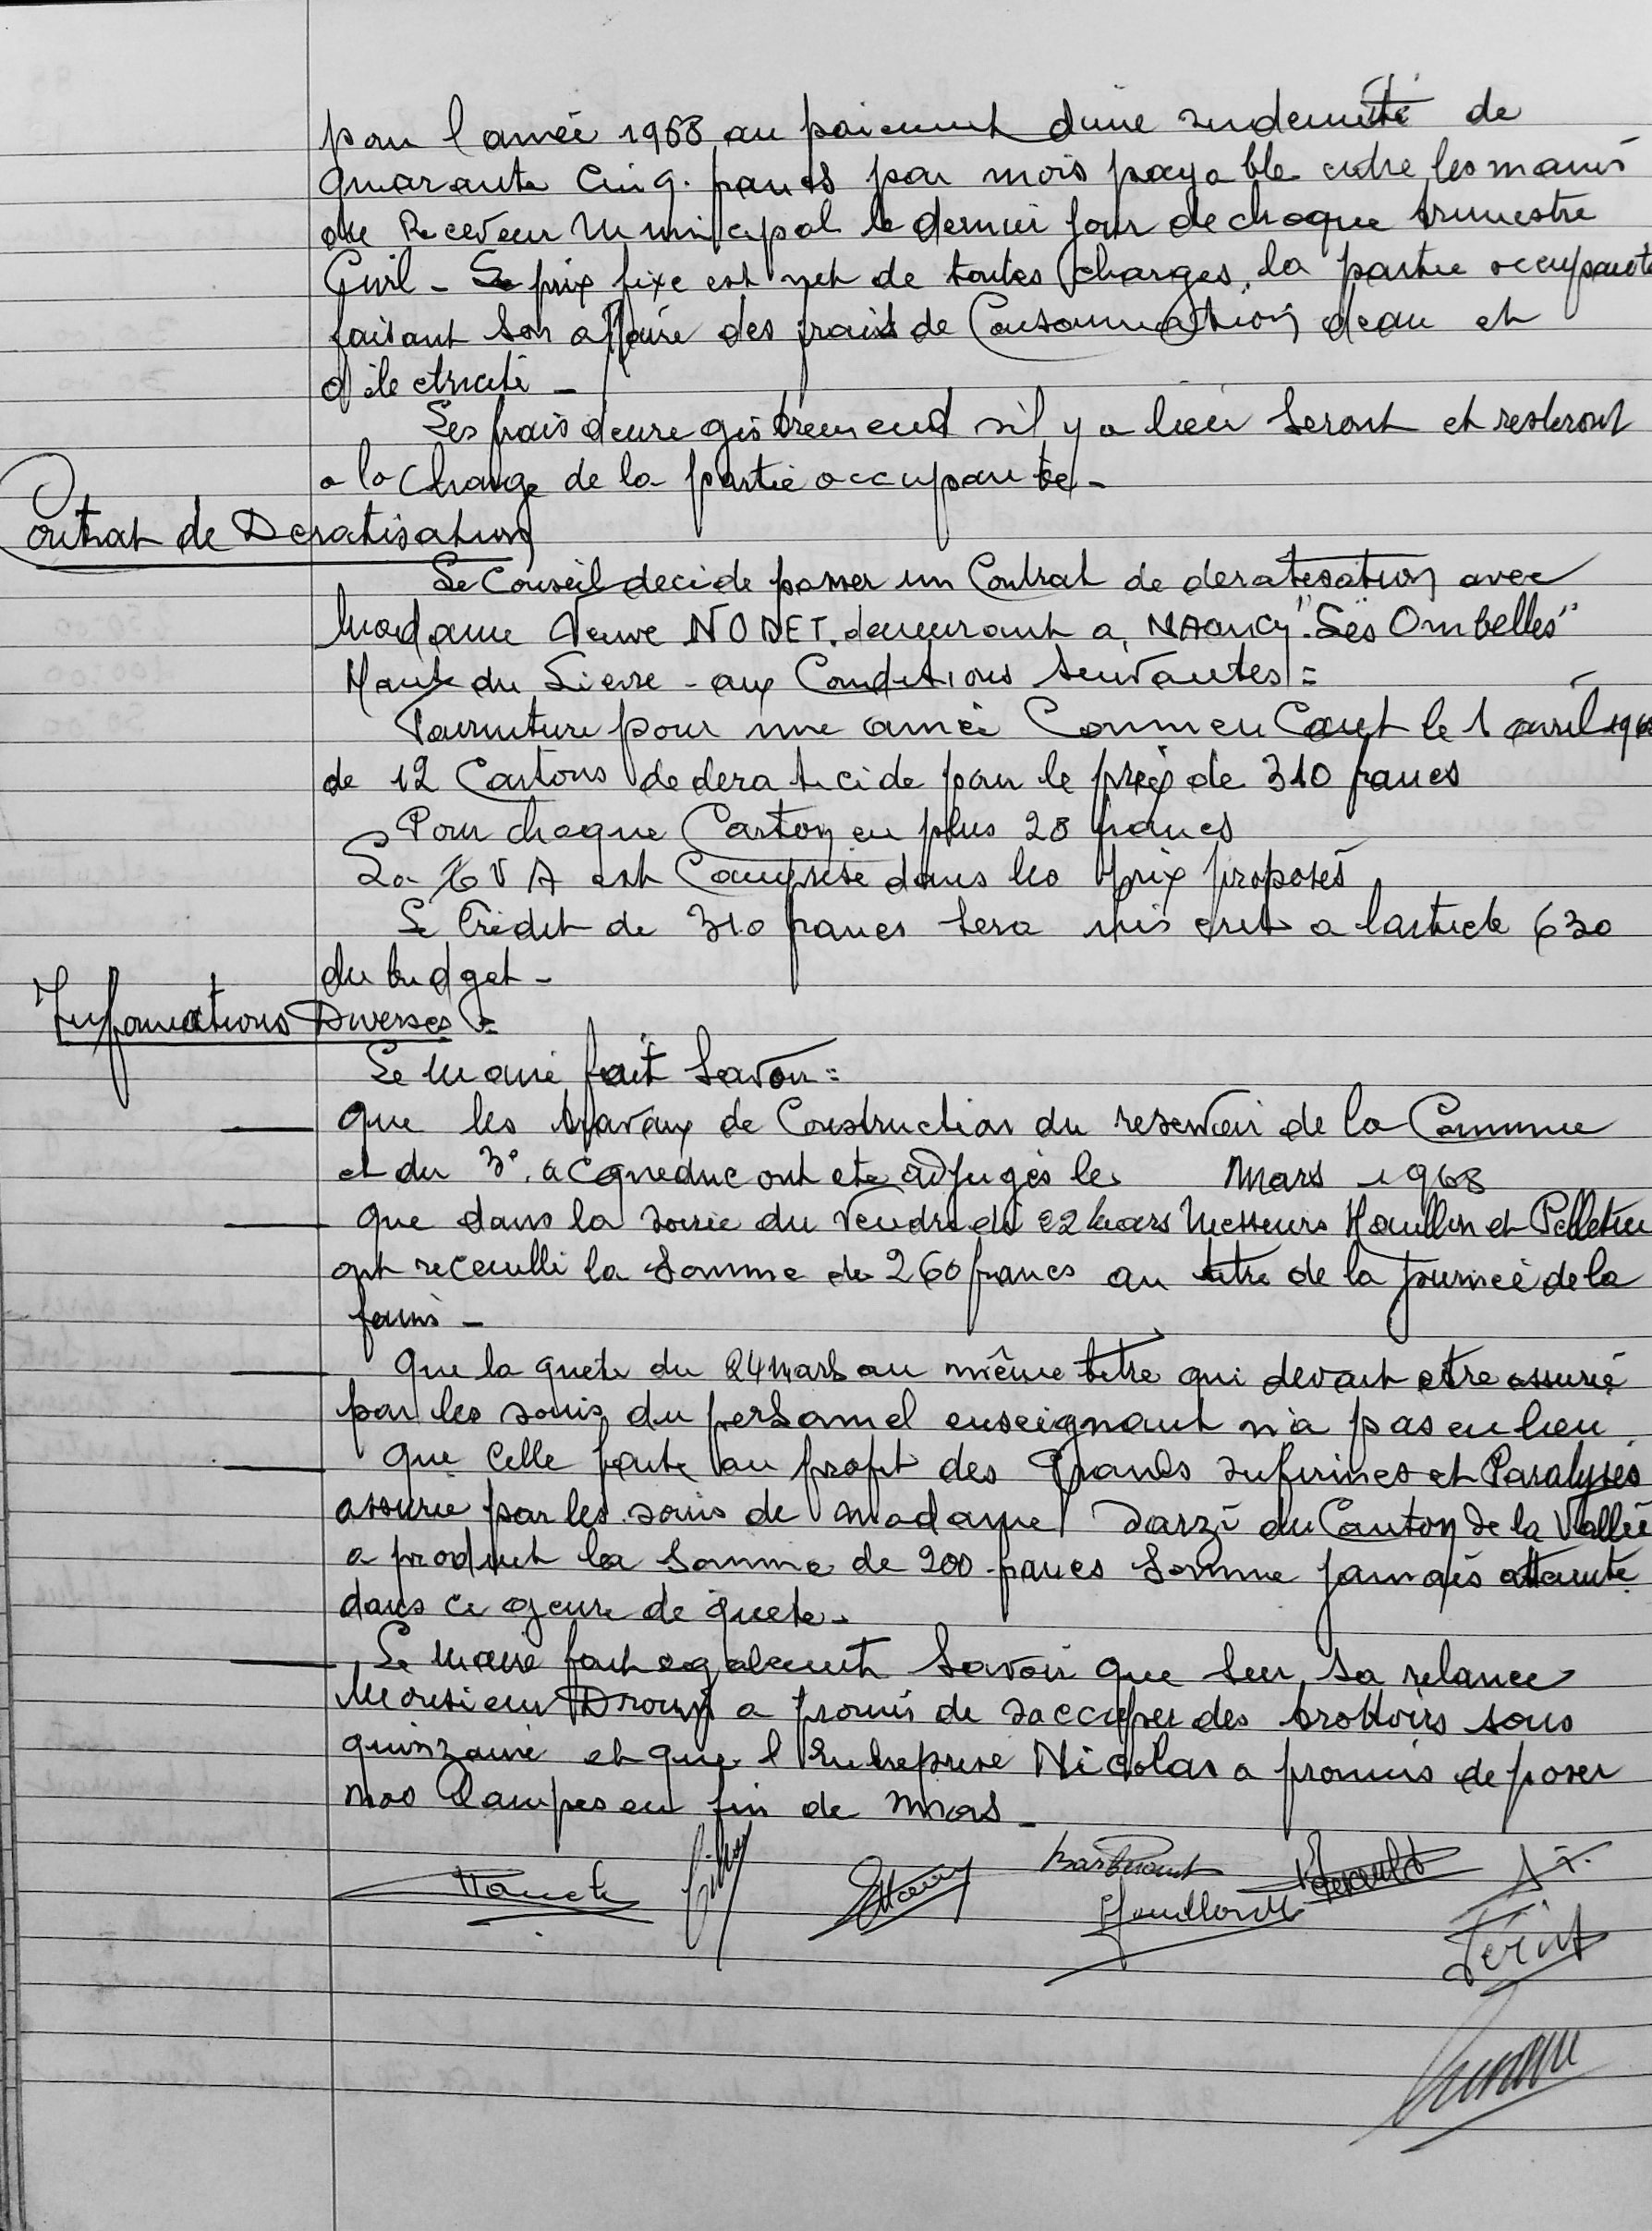 pour l'année 1968 au paiement d'une indemnité de
quarante cinq francs par mois payable entre les mains
du Receveur Municipal le dernier jour de chaque trimestre
Civil - Le prix fixe est net de toutes charges, la partie occupante
faisant son affaire des frais de Consommation d'eau et
d'électricité -
Les frais d'enregistrement s'il y a lieu seront et resteront
a la charge de la partie occupante -
Contrat de Deratisation
Le Conseil decide passer un Contrat de deratisation avec
Madame Veuve NODET. demeurant a NAncy "Les Ombelles"
Haut du Lievre - aux Conditions suivantes =
Fourniture pour une année Commençant le 1 avril 1968
de 12 Cartons de deraticide pour le prix de 310 francs
Pour chaque Carton en plus 28 francs
La TVA est Comprise dans les prix proposés
Le Crédit de 310 francs sera inscrit a l'article 630
du budget -
Informations Diverses =
Le Maire fait Savoir =
que les travaux de Construction du reservoir de la Commune
et du 3e. acqueduc ont ete adjugés le Mars 1968
que dans la soirée du Vendredi 22 Mars Messieurs Houllin et Pelletier
ont receuilli la Somme de 260 francs au titre de la Journeé de la
faim -
Que la quete du 24 Mars au même titre qui devait etre assurée
par les soins du personnel enseignant n'a pas eu lieu.
que Celle faite au profit des Grands Infirmes et Paralysés
assurée par les soins de Madame Darzi du Canton de la Vallée
a produit la somme de 200 francs Somme jamais atteinte
dans ce genre de quete -
Le Maire fait egalement Savoir que sur sa relance
Monsieur Drouin a promis de s'accuper des trottoirs sous
quinzaine et que l'Entreprise Nicolas a promis de poser
nos lampes en fin de Mars -